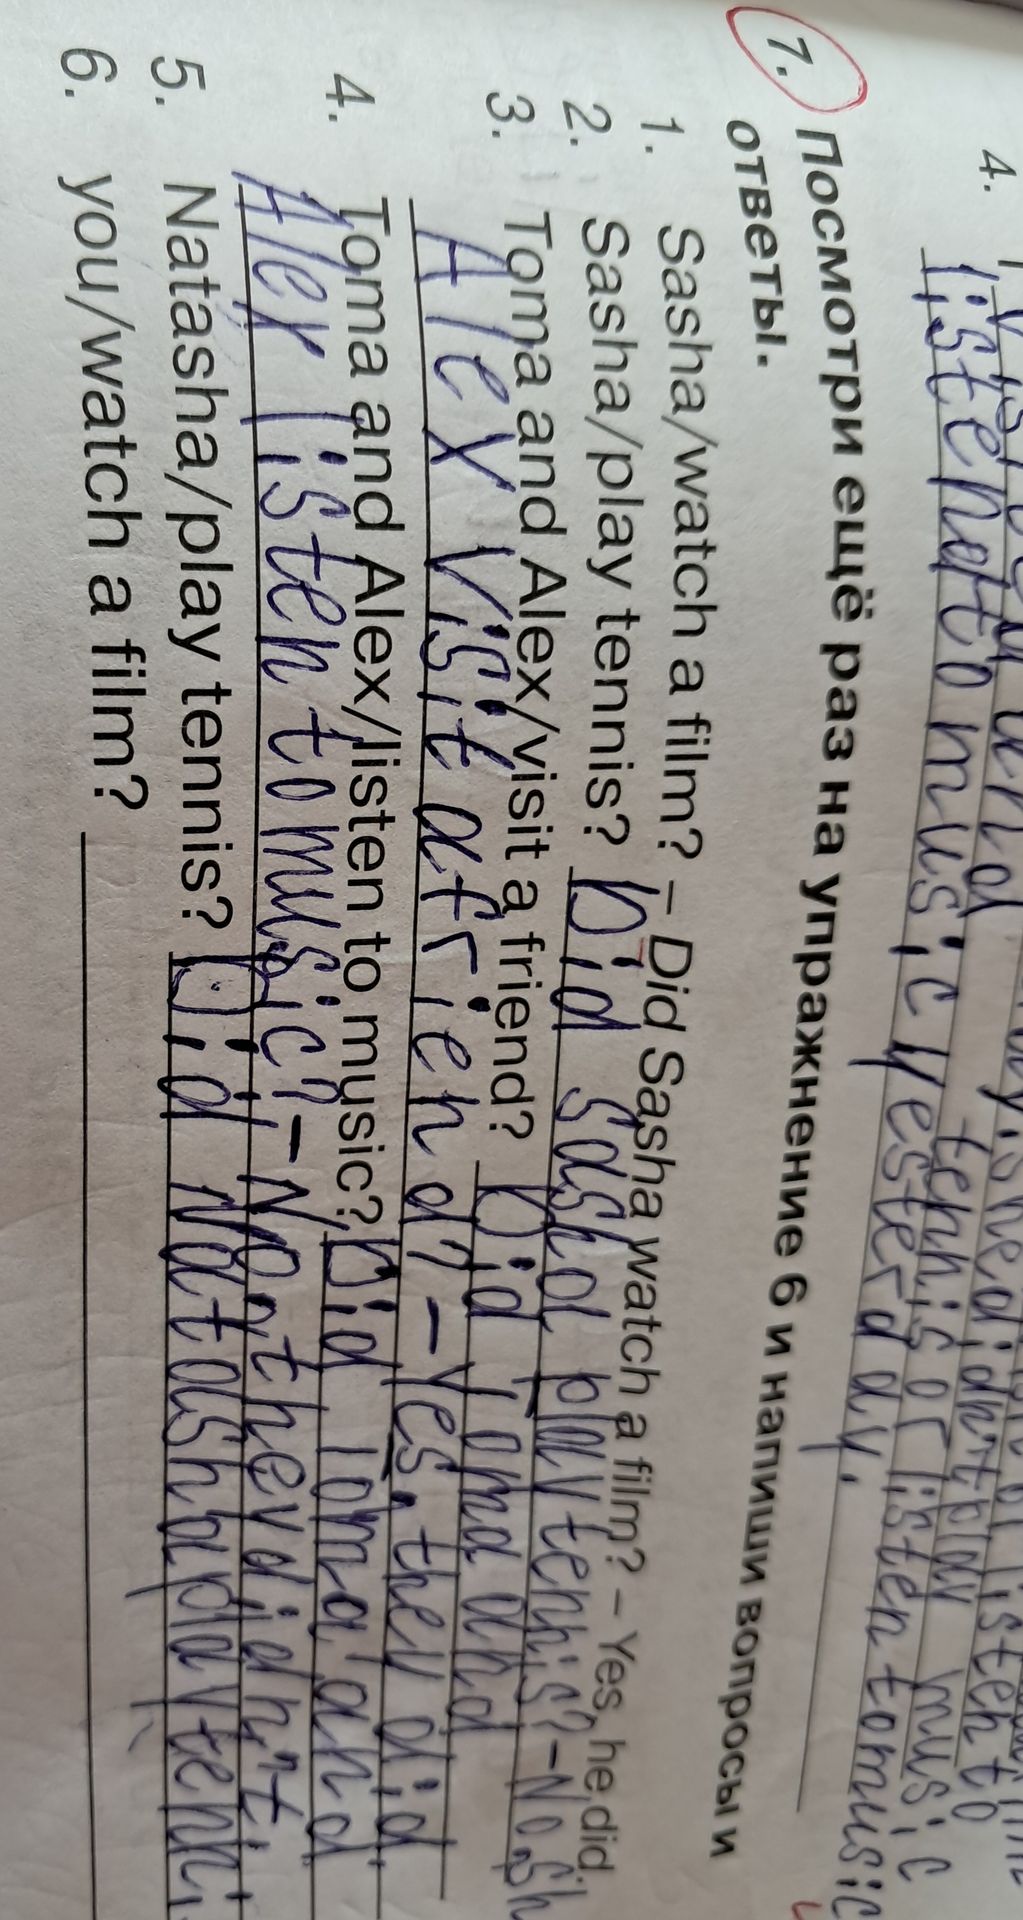 4.
listen to music yesterday.
tennis or listen to music
7. Посмотри ещё раз на упражнение 6 и напиши вопросы и
ответы.
1. Sasha/watch a film? – Did Sasha watch a film? – Yes, he did.
2. Sasha/play tennis? Did Sasha play tennis? – No, sh
3. Toma and Alex/visit a friend? Did Toma and
Alex visit a friend? – Yes, they did
4. Toma and Alex/listen to music? Did Toma and
Alex listen to music? – No, they didn't
5. Natasha/play tennis? Did Natasha play tenni
6. you/watch a film?